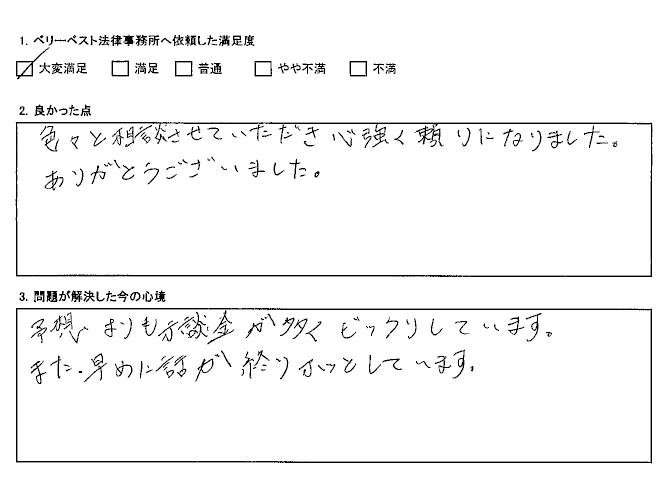 1. ベリーベスト法律事務所へ依頼した満足度
大変満足 満足 普通 やや不満 不満
2. 良かった点
色々と相談させていただき心強く頼りになりました。
ありがとうございました。
3. 問題が解決した今の心境
予想よりも示談金が多くビックリしています。
また、早めに話が終りホッとしています。